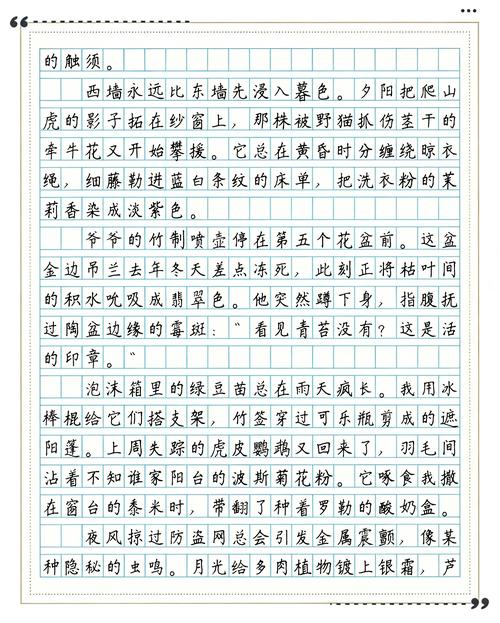 的触须。
西墙永远比东墙先浸入暮色。夕阳把爬山
虎的影子拓在纱窗上，那株被野猫抓伤茎干的
牵牛花又开始攀援。它总在黄昏时分缠绕晾衣
绳，细藤勒进蓝白条纹的床单，把洗衣粉的茉
莉香染成淡紫色。
爷爷的竹制喷壶停在第五个花盆前。这盆
金边吊兰去年冬天差点冻死，此刻正将枯叶间
的积水吮吸成翡翠色。他突然蹲下身，指腹抚
过陶盆边缘的霉斑：“看见青苔没有？这是活
的印章。”
泡沫箱里的绿豆苗总在雨天疯长。我用冰
棒棍给它们搭支架，竹签穿过可乐瓶剪成的遮
阳篷。上周失踪的虎皮鹦鹉又回来了，羽毛间
沾着不知谁家阳台的波斯菊花粉。它啄食我撒
在窗台的黍米时，带翻了种着罗勒的酸奶盒。
夜风掠过防盗网总会引发金属震颤，像某
种隐秘的虫鸣。月光给多肉植物镀上银霜，芦